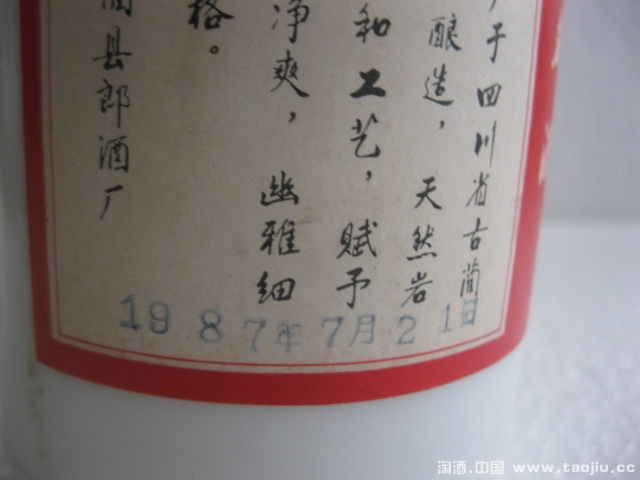 于四川省古蔺
酿造，天然岩
和工艺，赋予
净爽，幽雅细
格。
县郎酒厂
1987年7月21日
淘酒.中国 www.taojiu.cc